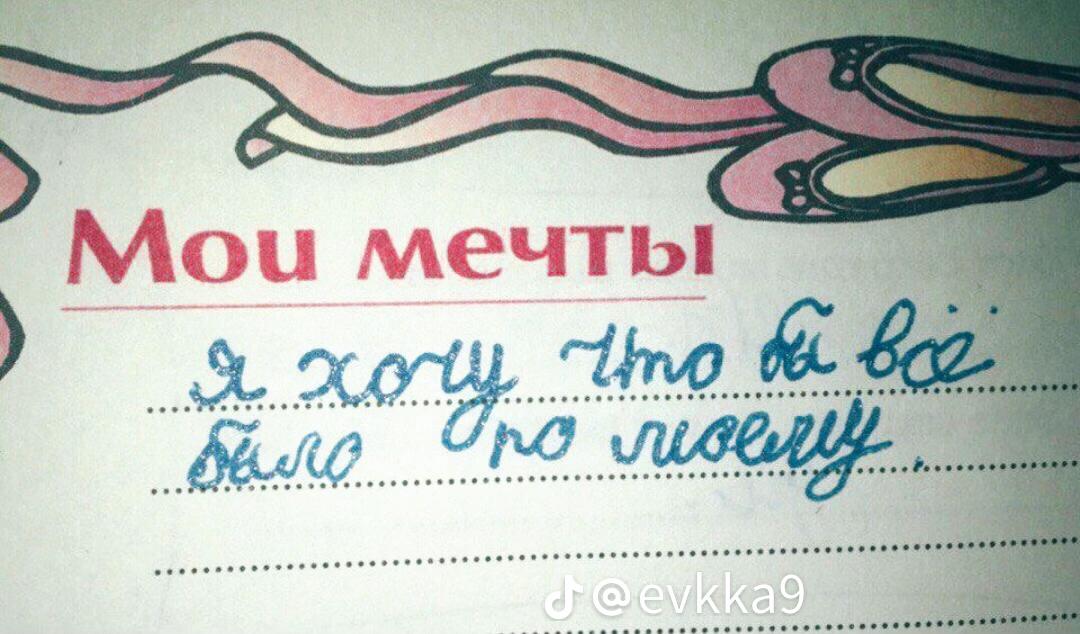 Мои мечты
Я хочу что бы всё
было по моему.
@evkka9